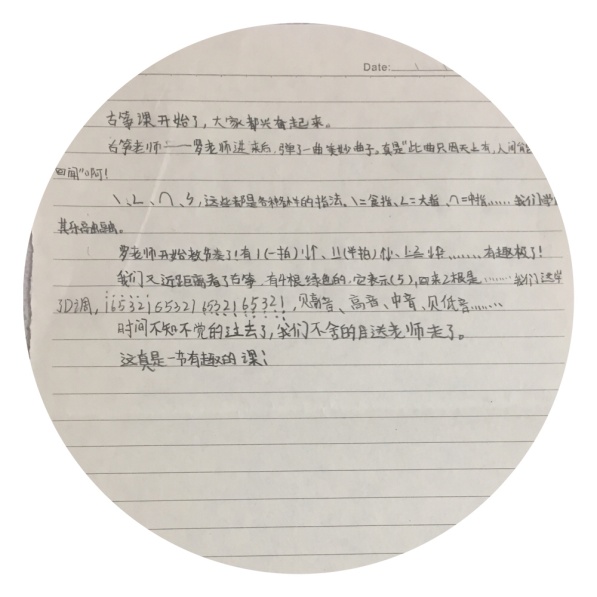 Date:
古筝课开始了,大家都兴奋起来。
古筝老师——罗老师进来后,弹了一曲美妙曲子。真是"此曲只因天上有,人间能
回闻"啊!
丶、乚、∩、ㄣ,这些都是各种的指法。丶=食指、乚=大指、∩=中指……我们
其乐融融。
罗老师开始教节奏了!有 | (一拍) (半拍) ……有趣极了!
我们又近距离看了古筝,有4根绿色的,它表示(5),回来2根是……我们还学
了D调,i6532165321653216532 1,贝高音、高音、中音、贝低音……
时间不知不觉的过去了,我们不舍的目送老师走了。
这真是一节有趣的课!